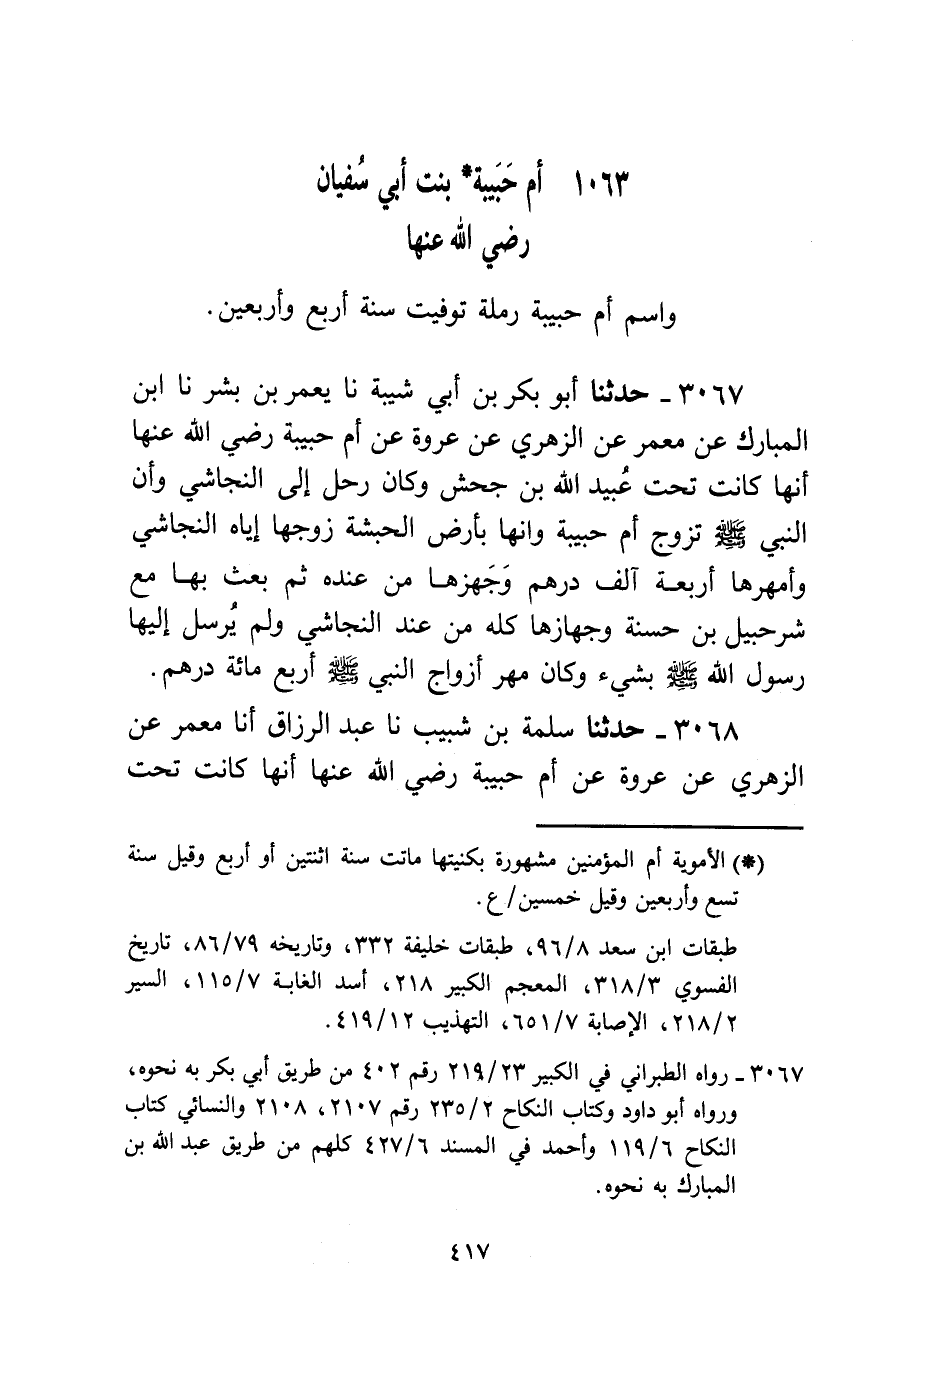 ١٠٦٣ أم حَبَيبة* بنت أبي سُفيان
رضي الله عنها
واسم أم حبيبة رملة توفيت سنة أربع وأربعين.
٣٠٦٧ ـ حدثنا أبو بكر بن أبي شيبة نا يعمر بن بشر نا ابن
المبارك عن معمر عن الزهري عن عروة عن أم حبيبة رضي الله عنها
أنها كانت تحت عُبيد الله بن جحش وكان رحل إلى النجاشي وأن
النبي ﷺ تزوج أم حبيبة وانها بأرض الحبشة زوجها إياه النجاشي
وأمهرها أربعة آلف درهم وَجَهزها من عنده ثم بعث بها مع
شرحبيل بن حسنة وجهازها كله من عند النجاشي ولم يُرسل إليها
رسول الله ﷺ بشيء وكان مهر أزواج النبي ﷺ أربع مائة درهم.
٣٠٦٨ ـ حدثنا سلمة بن شبيب نا عبد الرزاق أنا معمر عن
الزهري عن عروة عن أم حبيبة رضي الله عنها أنها كانت تحت
(*) الأموية أم المؤمنين مشهورة بكنيتها ماتت سنة اثنتين أو أربع وقيل سنة
تسع وأربعين وقيل خمسين/ ع.
طبقات ابن سعد ٩٦/٨، طبقات خليفة ٣٣٢، وتاريخه ٨٦/٧٩، تاريخ
الفسوي ٣١٨/٣، المعجم الكبير ٢١٨، أسد الغابة ١١٥/٧، السير
٢١٨/٢، الإصابة ٦٥١/٧، التهذيب ٤١٩/١٢.
٣٠٦٧ ـ رواه الطبراني في الكبير ٢١٩/٢٣ رقم ٤٠٢ من طريق أبي بكر به نحوه،
ورواه أبو داود وكتاب النكاح ٢٣٥/٢ رقم ٢١٠٧، ٢١٠٨ والنسائي كتاب
النكاح ١١٩/٦ وأحمد في المسند ٤٢٧/٦ كلهم من طريق عبد الله بن
المبارك به نحوه.
٤١٧